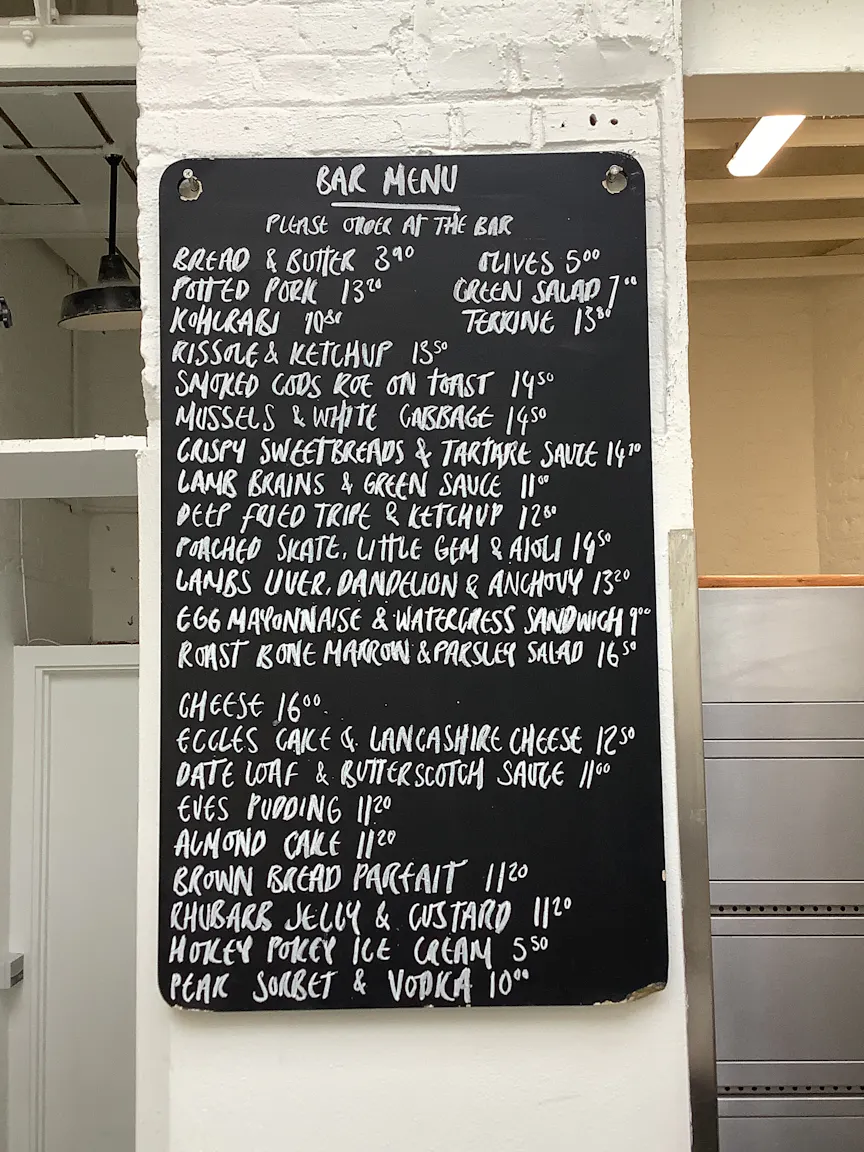 BAR MENU
PLEASE ORDER AT THE BAR
BREAD & BUTTER 3⁹⁰ OLIVES 5⁰⁰
POTTED PORK 13²⁰ GREEN SALAD 7⁰⁰
KOHLRABI 10⁸⁰ TERRINE 13⁸⁰
RISSOLE & KETCHUP 13⁵⁰
SMOKED CODS ROE ON TOAST 14⁵⁰
MUSSELS & WHITE CABBAGE 14⁵⁰
CRISPY SWEETBREADS & TARTARE SAUCE 14⁷⁰
LAMB BRAINS & GREEN SAUCE 11⁰⁰
DEEP FRIED TRIPE & KETCHUP 12⁸⁰
POACHED SKATE, LITTLE GEM & AIOLI 14⁵⁰
LAMBS LIVER, DANDELION & ANCHOVY 13²⁰
EGG MAYONNAISE & WATERCRESS SANDWICH 9⁰⁰
ROAST BONE MARROW & PARSLEY SALAD 16⁵⁰
CHEESE 16⁰⁰
ECCLES CAKE & LANCASHIRE CHEESE 12⁵⁰
DATE LOAF & BUTTERSCOTCH SAUCE 11⁰⁰
EVES PUDDING 11²⁰
ALMOND CAKE 11²⁰
BROWN BREAD PARFAIT 11²⁰
RHUBARB JELLY & CUSTARD 11²⁰
HOKEY POKEY ICE CREAM 5⁵⁰
PEAR SORBET & VODKA 10⁰⁰